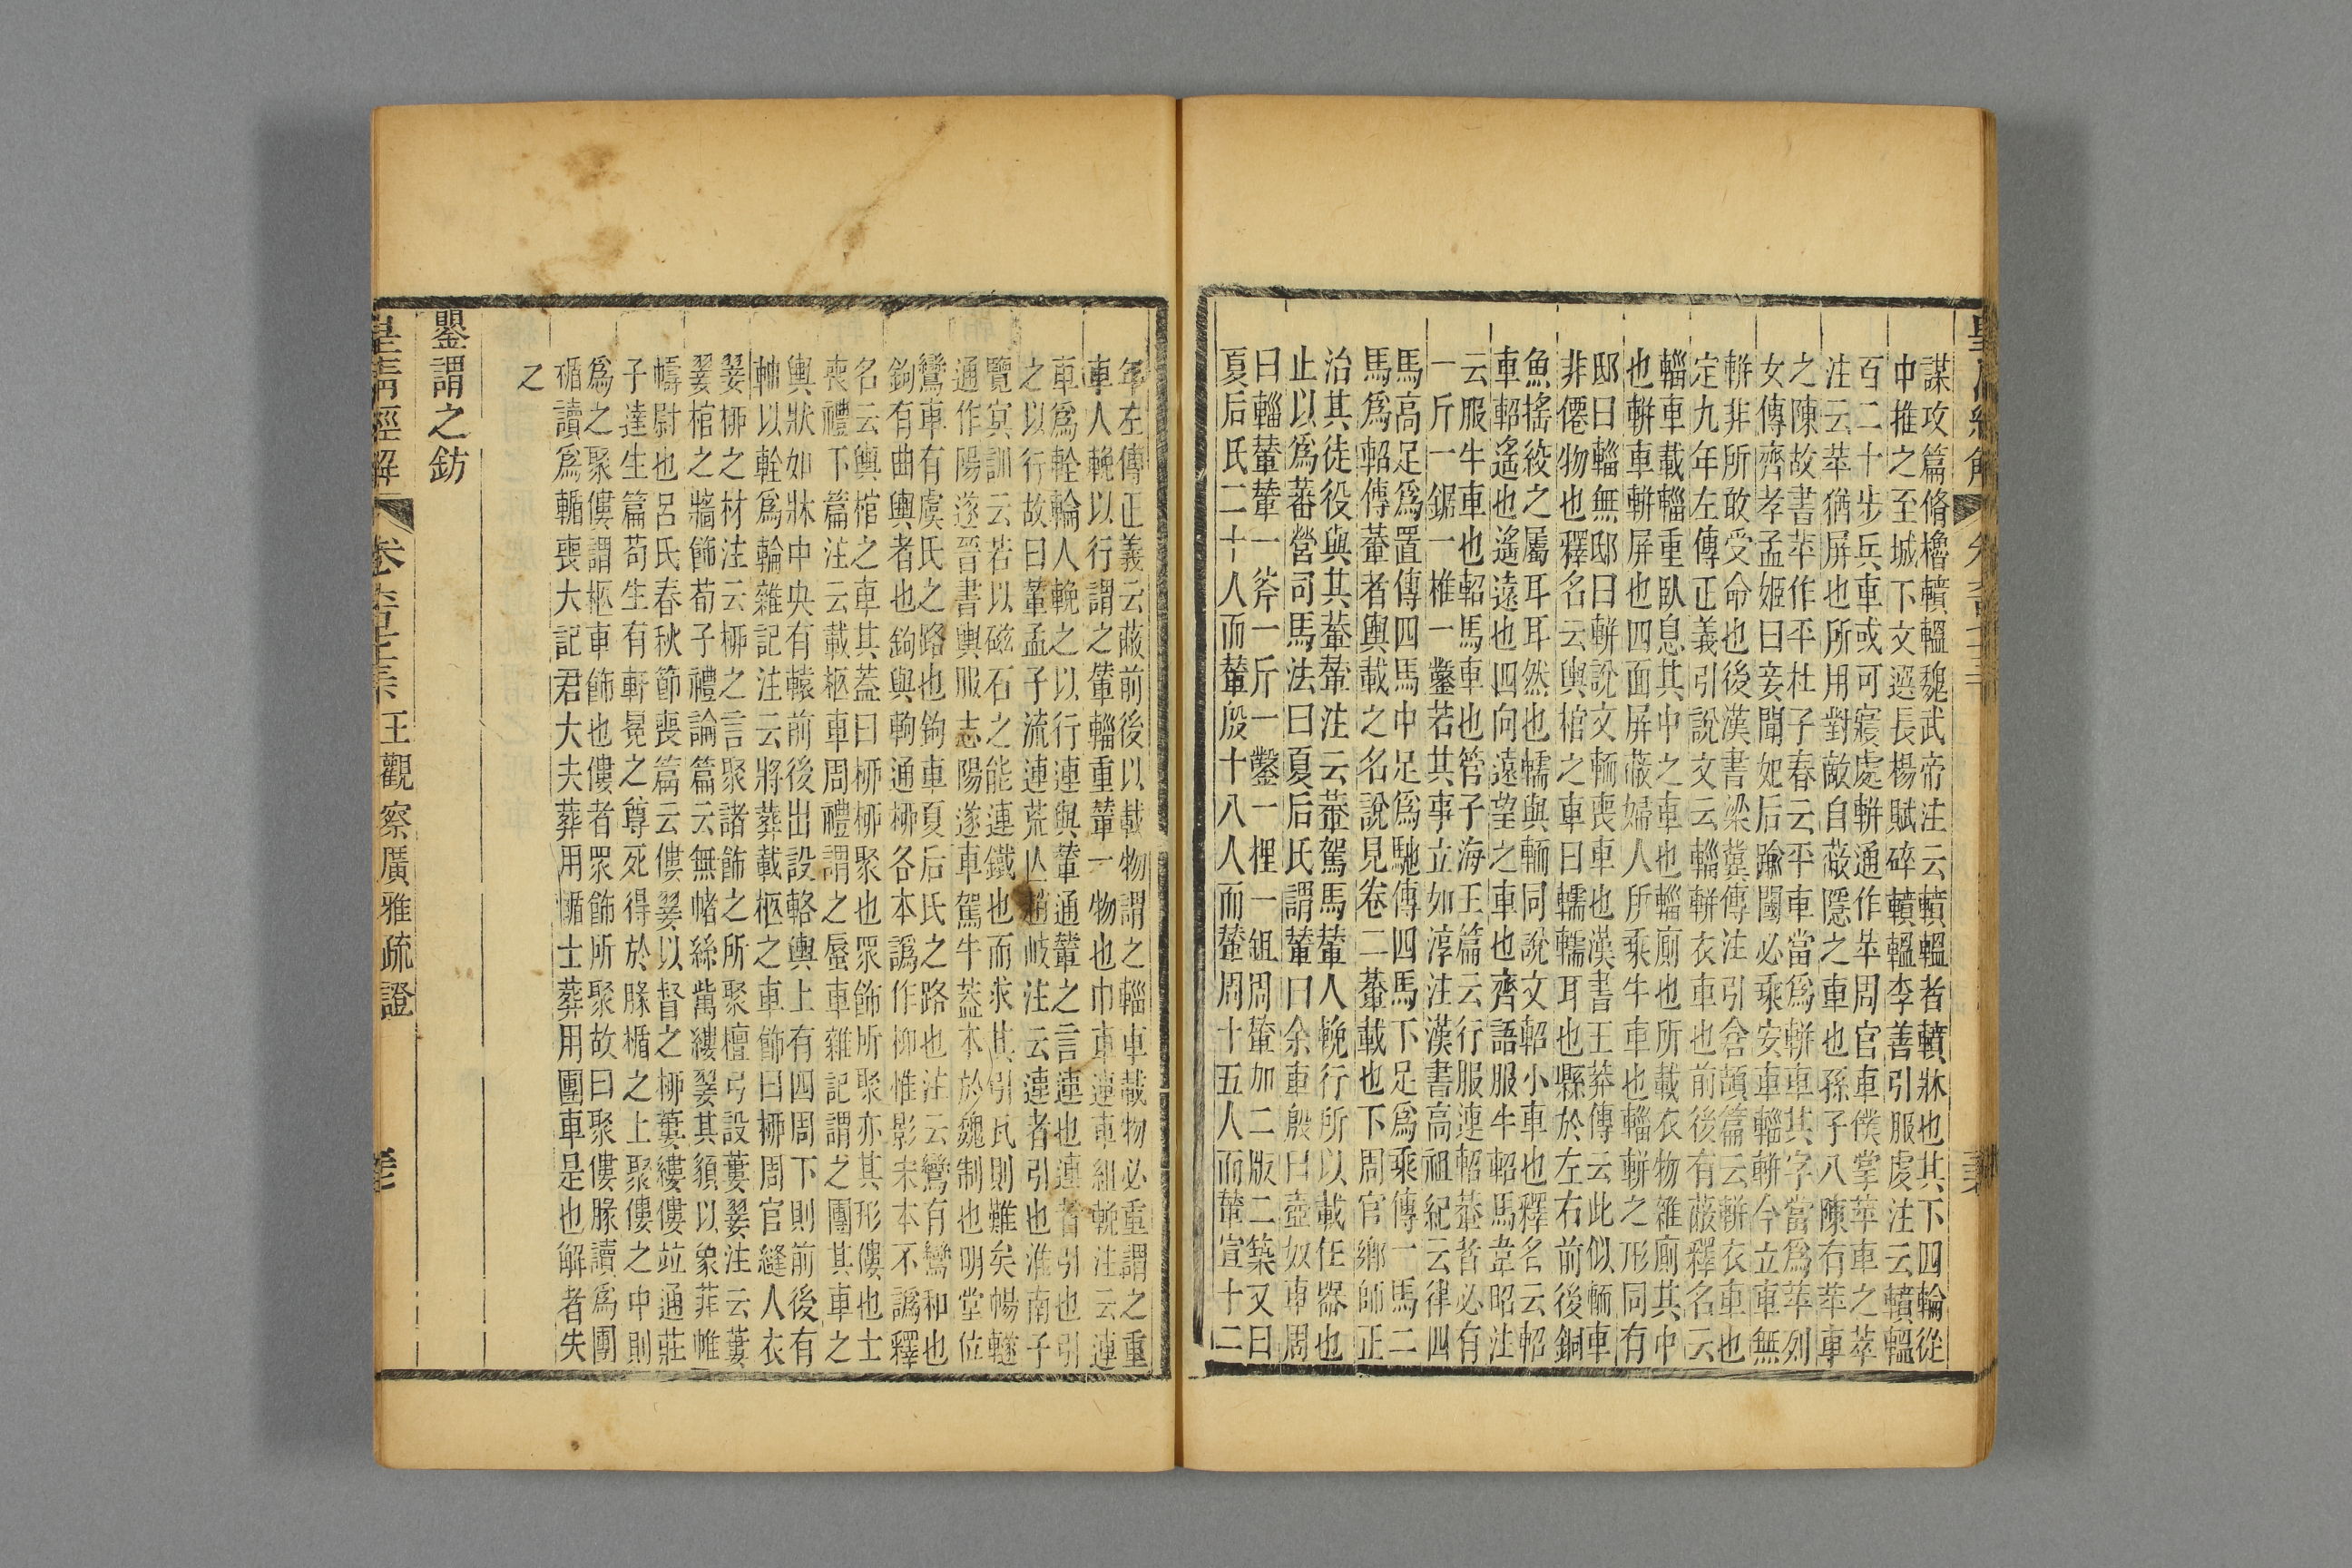 謀攻篇脩櫓轒轀魏武帝注云轒轀者轒牀也其下四輪從
中推之至城下文選長楊賦碎轒轀李善引服虔注云轒轀
百二十步兵車或可寢處軿通作苹周官車僕掌苹車之萃
注云苹猶屏也所用對敵自蔽隱之車也孫子八陳有苹車
之陳故書苹作平杜子春云平車當為軿車其字當為苹列
女傳齊孝孟姬曰妾聞妃后踰閾必乘安車輜軿今立車無
軿非所敢受命也後漢書梁冀傳注引倉頡篇云軿衣車也
定九年左傳正義引說文云輜軿衣車也前後有蔽釋名云
輜車載輜重臥息其中之車也輜廁也所載衣物雜廁其中
也軿車軿屏也四面屏蔽婦人所乘牛車也輜軿之形同有
邸曰輜無邸曰軿說文輀喪車也漢書王莽傳云此似輀車
非僊物也釋名云輿棺之車曰轜轜耳也縣於左右前後銅
魚搖絞之屬耳耳然也轜與輀同說文軺小車也釋名云軺
車軺遙也遙遠也四向遠望之車也齊語服牛軺馬韋昭注
云服牛車也軺馬車也管子海王篇云行服連軺輂者必有
一斤一鋸一椎一鑿若其事立如淳注漢書高祖紀云律四
馬高足為置傳四馬中足為馳傳四馬下足為乘傳一馬二
馬為軺傳輂者輿載之名說見卷二輂載也下周官鄉師正
治其徒役與其輂輦注云輂駕馬輦人輓行所以載任器也
止以為蕃營司馬法曰夏后氏謂輦曰余車殷曰壺奴車周
曰輜輦輦一斧一斤一鑿一梩一鉏周輦加二版二築又曰
夏后氏二十人而輦殷十八人而輦周十五人而輦宣十二
年左傳正義云蔽前後以載物謂之輜車載物必重謂之重
車人輓以行謂之輦輜重輦一物也巾車連車組輓注云連
車為輇輪人輓之以行連與輦通輦之言連也連者引也引
之以行故曰輦孟子流連荒亾趙岐注云連者引也淮南子
覽冥訓云若以磁石之能連鐵也而求其引瓦則難矣暢轊
通作陽遂晉書輿服志陽遂車駕牛葢本於魏制也明堂位
鸞車有虞氏之路也鉤車夏后氏之路也注云鸞有鸞和也
鉤有曲輿者也鉤與軥通柳各本譌作枊惟影宋本不譌釋
名云輿棺之車其蓋曰柳柳聚也眾飾所聚亦其形僂也士
喪禮下篇注云載柩車周禮謂之蜃車雜記謂之團其車之
輿狀如牀中央有轅前後出設輅輿上有四周下則前後有
軸以輇為輪雜記注云將葬載柩之車飾曰柳周官縫人衣
翣柳之材注云柳之言聚諸飾之所聚檀弓設蔞翣注云蔞
翣棺之牆飾荀子禮論篇云無帾絲歶縷翣其䫉以象菲帷
幬尉也呂氏春秋節喪篇云僂翣以督之柳蔞縷僂竝通莊
子達生篇苟生有軒冕之尊死得於腞楯之上聚僂之中則
為之聚僂謂柩車飾也僂者眾飾所聚故曰聚僂腞讀為團
楯讀為輴喪大記君大夫葬用輴士葬用團車是也解者失
之
鑾謂之鈁
皇清經解
王觀察廣雅疏證